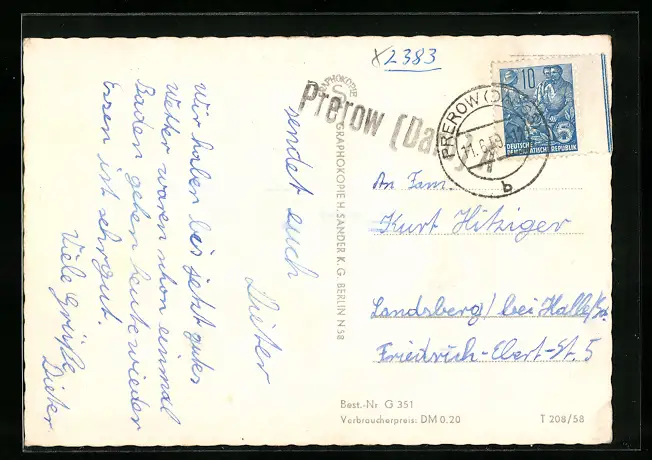 X2383
10
5
DEUTSCHE
DEMOKRATISCHE REPUBLIK
PREROW (DARSS)
11.6.59
b
Prerow (Darß)
GRAPHOKOPIE
GRAPHOKOPIE H. SANDER K.G. BERLIN N 58
An Fam.
Kurt Hitziger
Landsberg/ bei Halle/Sa.
Friedrich-Ebert-St. 5
Wir haben bis jetzt gutes
Wetter waren schon einmal
Baden gehen heute wieder
Essen ist sehr gut.
Viele Grüße
Dieter
sendet euch
Dieter
Best.-Nr. G 351
Verbraucherpreis: DM 0.20
T 208/58